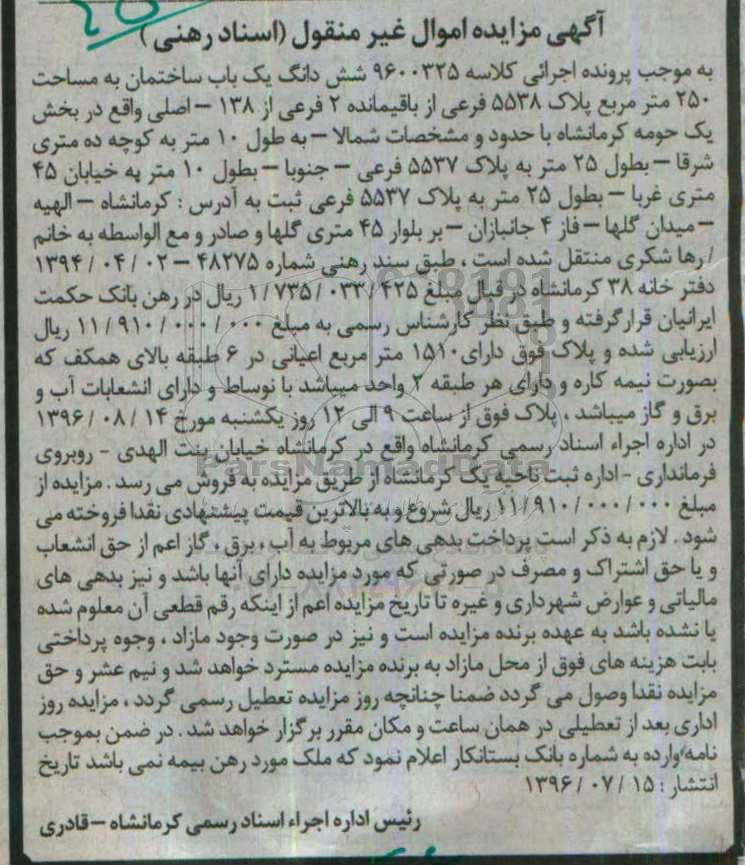 آگهی مزایده اموال غیر منقول (اسناد رهنی)
به موجب پرونده اجرائی کلاسه ۹۶۰۰۳۲۵ شش دانگ یک باب ساختمان به مساحت
۲۵۰ متر مربع پلاک ۵۵۳۸ فرعی از باقیمانده ۲ فرعی از ۱۳۸ – اصلی واقع در بخش
یک حومه کرمانشاه با حدود و مشخصات شمالا – به طول ۱۰ متر به کوچه ده متری
شرقا – بطول ۲۵ متر به پلاک ۵۵۳۷ فرعی – جنوبا – بطول ۱۰ متر به خیابان ۴۵
متری غربا – بطول ۲۵ متر به پلاک ۵۵۳۷ فرعی ثبت به آدرس : کرمانشاه – الهیه
– میدان گلها – فاز ۴ جانبازان – بر بلوار ۴۵ متری گلها و صادر و مع الواسطه به خانم
/ رها شکری منتقل شده است ، طبق سند رهنی شماره ۴۸۲۷۵ – ۱۳۹۴/۰۴/۰۲
دفتر خانه ۳۸ کرمانشاه در قبال مبلغ ۱/۷۳۵/۰۳۳/۴۲۵ ریال در رهن بانک حکمت
ایرانیان قرار گرفته و طبق نظر کارشناس رسمی به مبلغ ۱۱/۹۱۰/۰۰۰/۰۰۰ ریال
ارزیابی شده و پلاک فوق دارای ۱۵۱۰ متر مربع اعیانی در ۶ طبقه بالای همکف که
بصورت نیمه کاره و دارای هر طبقه ۲ واحد میباشد با نوساط و دارای انشعابات آب و
برق و گاز میباشد ، پلاک فوق از ساعت ۹ الی ۱۲ روز یکشنبه مورخ ۱۳۹۶/۰۸/۱۴
در اداره اجراء اسناد رسمی کرمانشاه واقع در کرمانشاه خیابان بنت الهدی - روبروی
فرمانداری - اداره ثبت ناحیه یک کرمانشاه از طریق مزایده به فروش می رسد . مزایده از
مبلغ ۱۱/۹۱۰/۰۰۰/۰۰۰ ریال شروع و به بالاترین قیمت پیشنهادی نقدا فروخته می
شود . لازم به ذکر است پرداخت بدهی های مربوط به آب ، برق ، گاز اعم از حق انشعاب
و یا حق اشتراک و مصرف در صورتی که مورد مزایده دارای آنها باشد و نیز بدهی های
مالیاتی و عوارض شهرداری و غیره تا تاریخ مزایده اعم از اینکه رقم قطعی آن معلوم شده
یا نشده باشد به عهده برنده مزایده است و نیز در صورت وجود مازاد ، وجوه پرداختی
بابت هزینه های فوق از محل مازاد به برنده مزایده مسترد خواهد شد و نیم عشر و حق
مزایده نقدا وصول می گردد ضمنا چنانچه روز مزایده تعطیل رسمی گردد ، مزایده روز
اداری بعد از تعطیلی در همان ساعت و مکان مقرر برگزار خواهد شد . در ضمن بموجب
نامه وارده به شماره بانک بستانکار اعلام نمود که ملک مورد رهن بیمه نمی باشد تاریخ
انتشار : ۱۳۹۶/۰۷/۱۵
رئیس اداره اجراء اسناد رسمی کرمانشاه – قادری
ParsNamadData